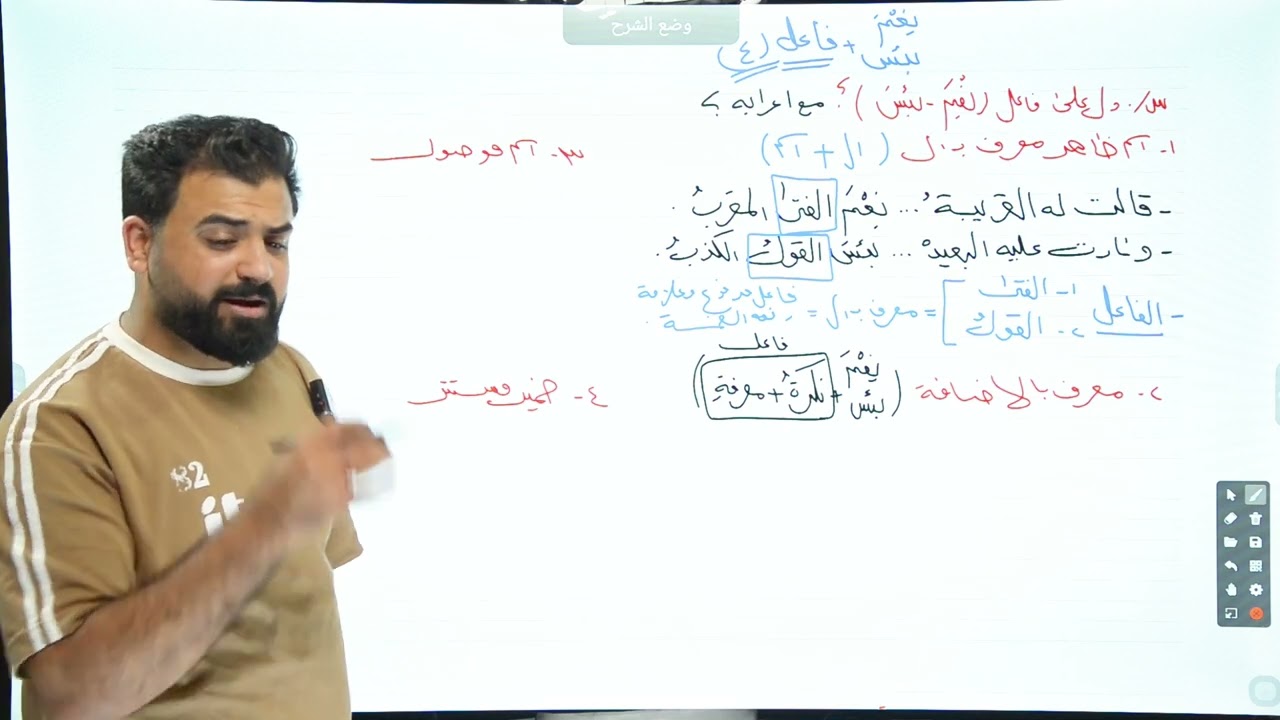 وضع الشرح
نِعْمَ
بئس + فاعل (٤)
س/. دل على فاعل (نِعْمَ - بِئسَ)؟ مع اعرابه؟
١- اسم ظاهر معرف بـ ال (ال + اسم)
٣- اسم موصول
- قالت له القريبةُ ... نِعْمَ الفتى المقربُ.
- وثارت عليه البعيدة ... بئسَ القولُ الكذبُ.
- الفاعل
١- الفتى
٢- القولُ
= معرف بـ ال = فاعل مرفوع وعلامة رفعه الضمة.
٢- معرف بالاضافة (نِعْمَ بئس + نكرةُ + معرفةِ)
فاعل
٤- ضمير مستتر
82
it